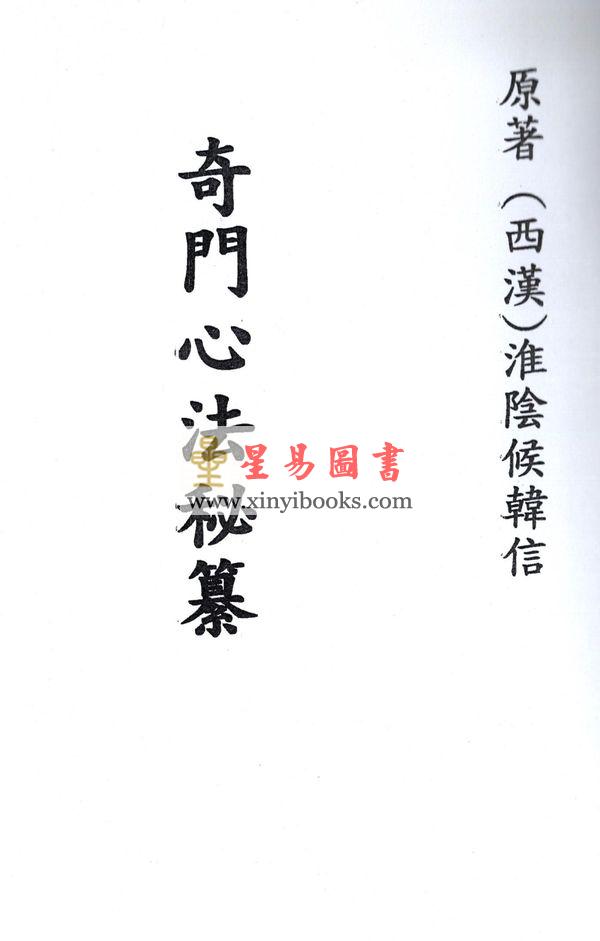 原著（西漢）淮陰候韓信
奇門心法秘纂
星易圖書
www.xinyibooks.com